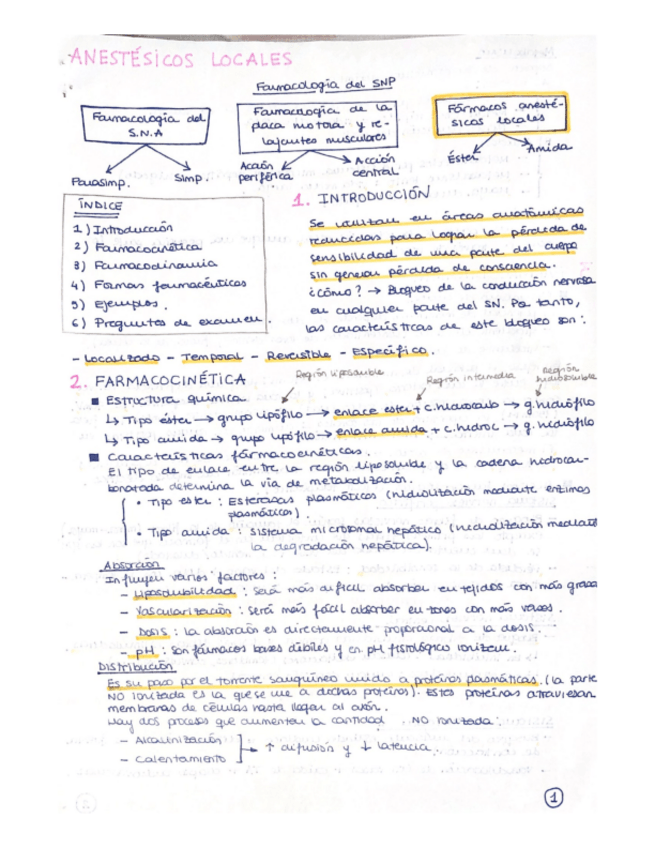 ANESTÉSICOS LOCALES
Farmacología del SNP
Farmacología del
S.N.A
Farmacología de la
placa motora y re-
lajantes musculares
Fármacos anesté-
sicos locales
Parasimp.
Simp.
Acción
periférica
Acción
central
Éster
Amida
ÍNDICE
1) Introducción
2) Farmacocinética
3) Farmacodinamia
4) Formas farmacéuticas
5) Ejemplos.
6) Preguntas de examen.
1. INTRODUCCIÓN
Se utilizan en áreas anatómicas
reducidas para lograr la pérdida de
sensibilidad de una parte del cuerpo
sin generar pérdida de consciencia.
¿cómo? → Bloqueo de la conducción nerviosa
en cualquier parte del SN. Por tanto,
las características de este bloqueo son:
- Localizado - Temporal - Reversible - Específico.
2. FARMACOCINÉTICA
Región liposoluble
Región intermedia
Región
hidrosoluble
■ Estructura química
↳ Tipo éster → grupo lipófilo → enlace ester + c. hidrocarb → g. hidrófilo
↳ Tipo amida → grupo lipófilo → enlace amida + c. hidroc → g. hidrófilo
■ Características farmacocinéticas.
El tipo de enlace entre la región liposoluble y la cadena hidrocar-
bonatada determina la vía de metabolización.
• Tipo ester: Esterasas plasmáticas (hidrolización mediante enzimas
plasmáticos).
• Tipo amida: sistema microsomal hepático (hidrolización mediante
la degradación hepática).
Absorción
Influyen varios factores:
- Liposolubilidad: Será más difícil absorber en tejidos con más grasa
- Vascularización: será más fácil absorber en zonas con más vasos.
- Dosis: la absorción es directamente proporcional a la dosis.
- pH: son fármacos bases débiles y en pH fisiológico ionizan.
Distribución
Es su paso por el torrente sanguíneo unido a proteínas plasmáticas. (la parte
NO ionizada es la que se une a dichas proteínas). Estas proteínas atraviesan
membranas de células hasta llegar al axón.
Hay dos procesos que aumentan la cantidad NO ionizada:
- Alcalinización
- Calentamiento
→ ↑ difusión y ↓ latencia.
1